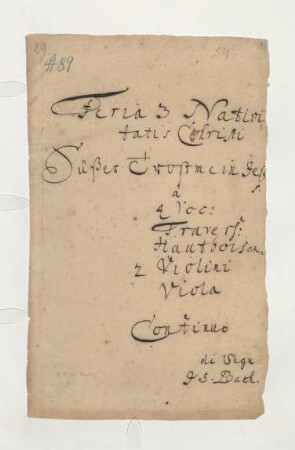 A89
Feria 3 Nativi
tatis Christi
Süßer Trost mein Jes
a
4 Voc:
Travers:
Hautbois
2 Violini
Viola
Continuo
di Sign
J. S. Bach.